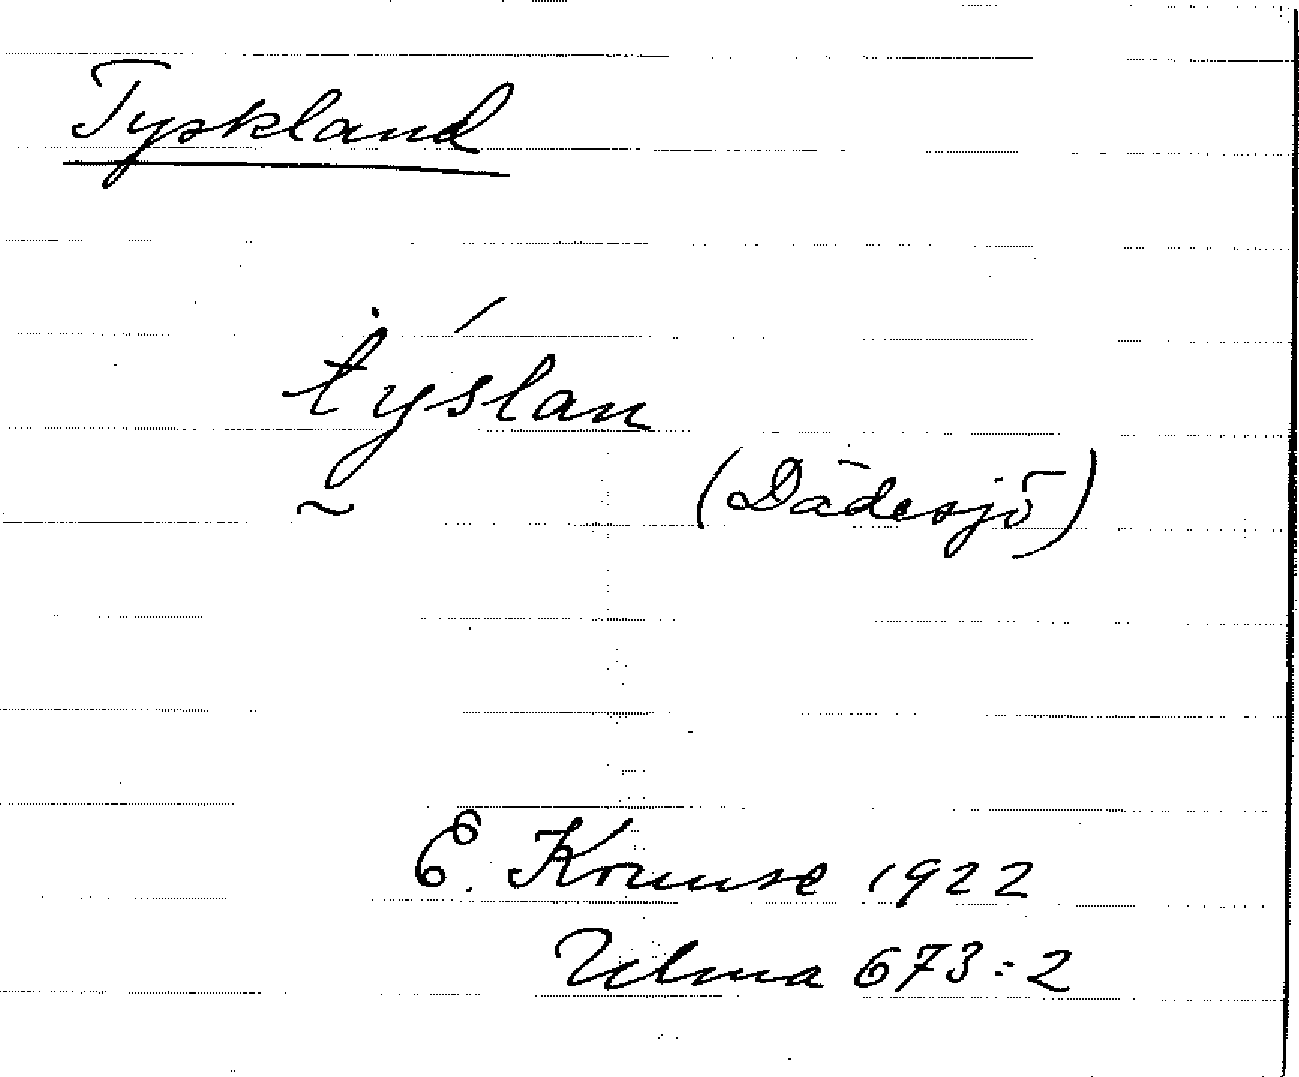 Tyskland
týslan
(Dädesjö)
E. Kruuse 1922
Ulma 673:2